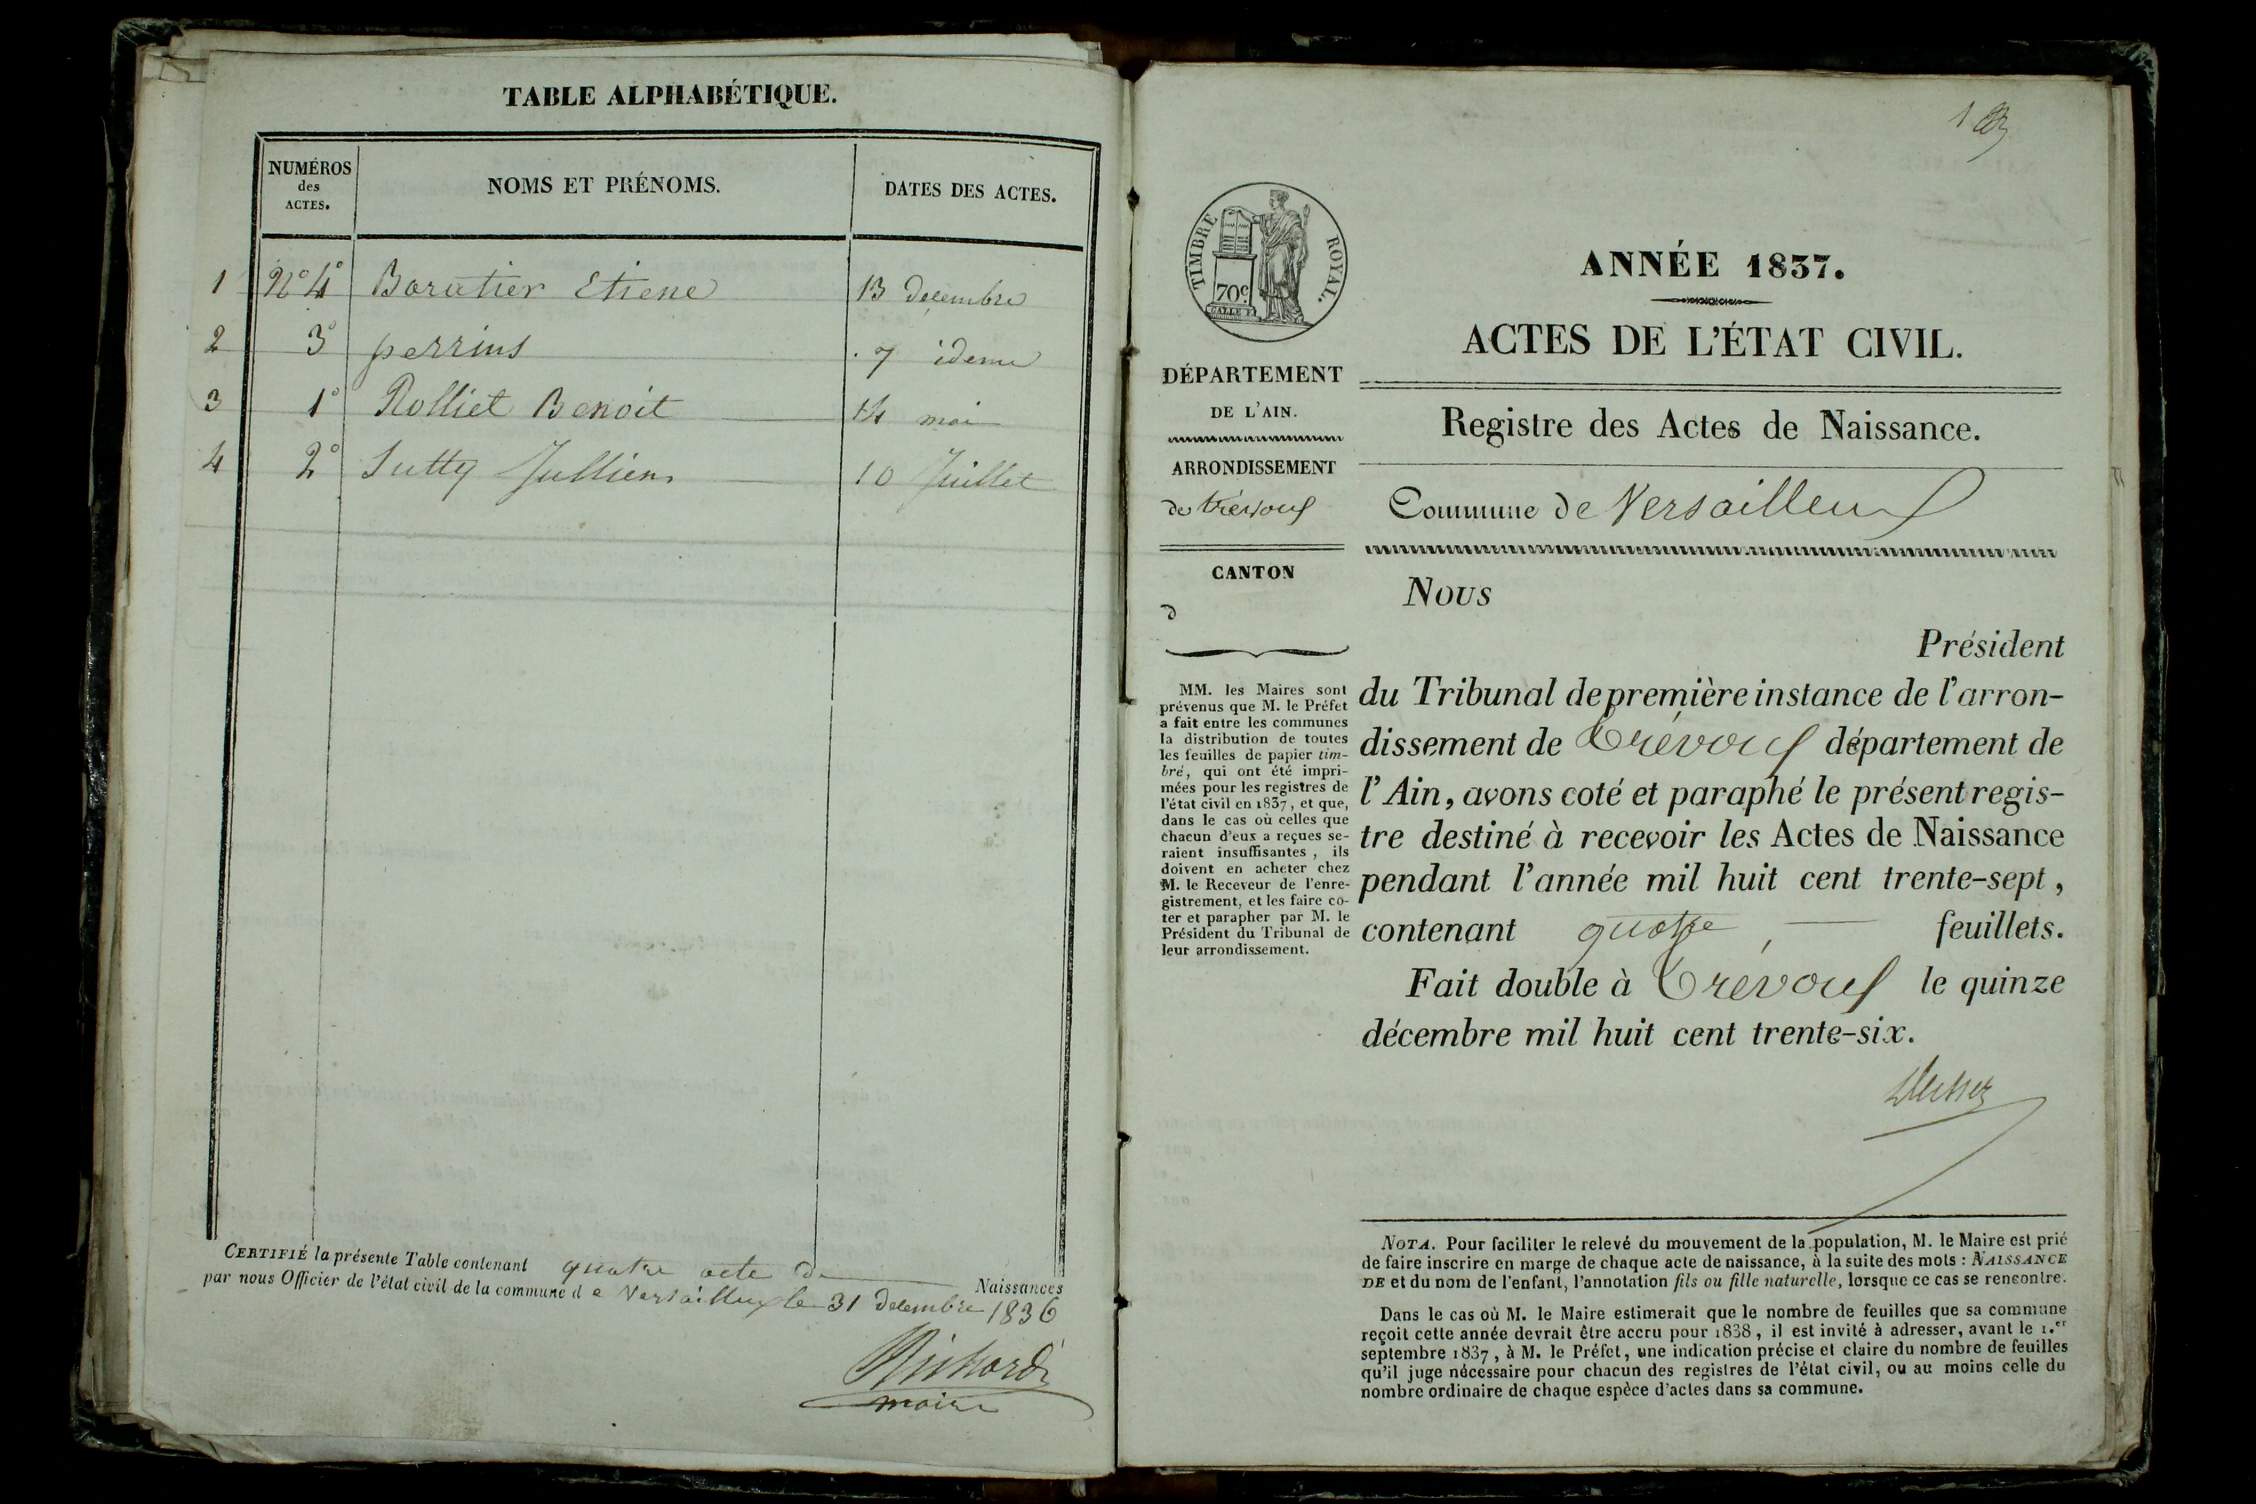 TABLE ALPHABÉTIQUE.
NUMÉROS
des
ACTES.
NOMS ET PRÉNOMS.
DATES DES ACTES.
1 N° 4° Baratier Etiene 13 decembre
2 3° perrius 7 idem
3 1° Rolliet Benoit 14 mai
4 2° Sutty Jullien 10 Juillet
CERTIFIÉ la présente Table contenant quatre acte de Naissances
par nous Officier de l'état civil de la commune de Versailleux le 31 decembre 1836
Richard
maire
1
TIMBRE ROYAL.
70c
ANNÉE 1837.
ACTES DE L'ÉTAT CIVIL.
DÉPARTEMENT
DE L'AIN.
ARRONDISSEMENT
de trévoux
CANTON
d
MM. les Maires sont
prévenus que M. le Préfet
a fait entre les communes
la distribution de toutes
les feuilles de papier tim-
bré, qui ont été impri-
mées pour les registres de
l'état civil en 1837, et que,
dans le cas où celles que
chacun d'eux a reçues se-
raient insuffisantes, ils
doivent en acheter chez
M. le Receveur de l'enre-
gistrement, et les faire co-
ter et parapher par M. le
Président du Tribunal de
leur arrondissement.
Registre des Actes de Naissance.
Commune de Versailleux
Nous
Président
du Tribunal de première instance de l'arron-
dissement de Trévoux département de
l'Ain, avons coté et paraphé le présent regis-
tre destiné à recevoir les Actes de Naissance
pendant l'année mil huit cent trente-sept,
contenant quatre feuillets.
Fait double à Trévoux le quinze
décembre mil huit cent trente-six.
NOTA. Pour faciliter le relevé du mouvement de la population, M. le Maire est prié
de faire inscrire en marge de chaque acte de naissance, à la suite des mots : NAISSANCE
DE et du nom de l'enfant, l'annotation fils ou fille naturelle, lorsque ce cas se rencontre.
Dans le cas où M. le Maire estimerait que le nombre de feuilles que sa commune
reçoit cette année devrait être accru pour 1838, il est invité à adresser, avant le 1.er
septembre 1837, à M. le Préfet, une indication précise et claire du nombre de feuilles
qu'il juge nécessaire pour chacun des registres de l'état civil, ou au moins celle du
nombre ordinaire de chaque espèce d'actes dans sa commune.